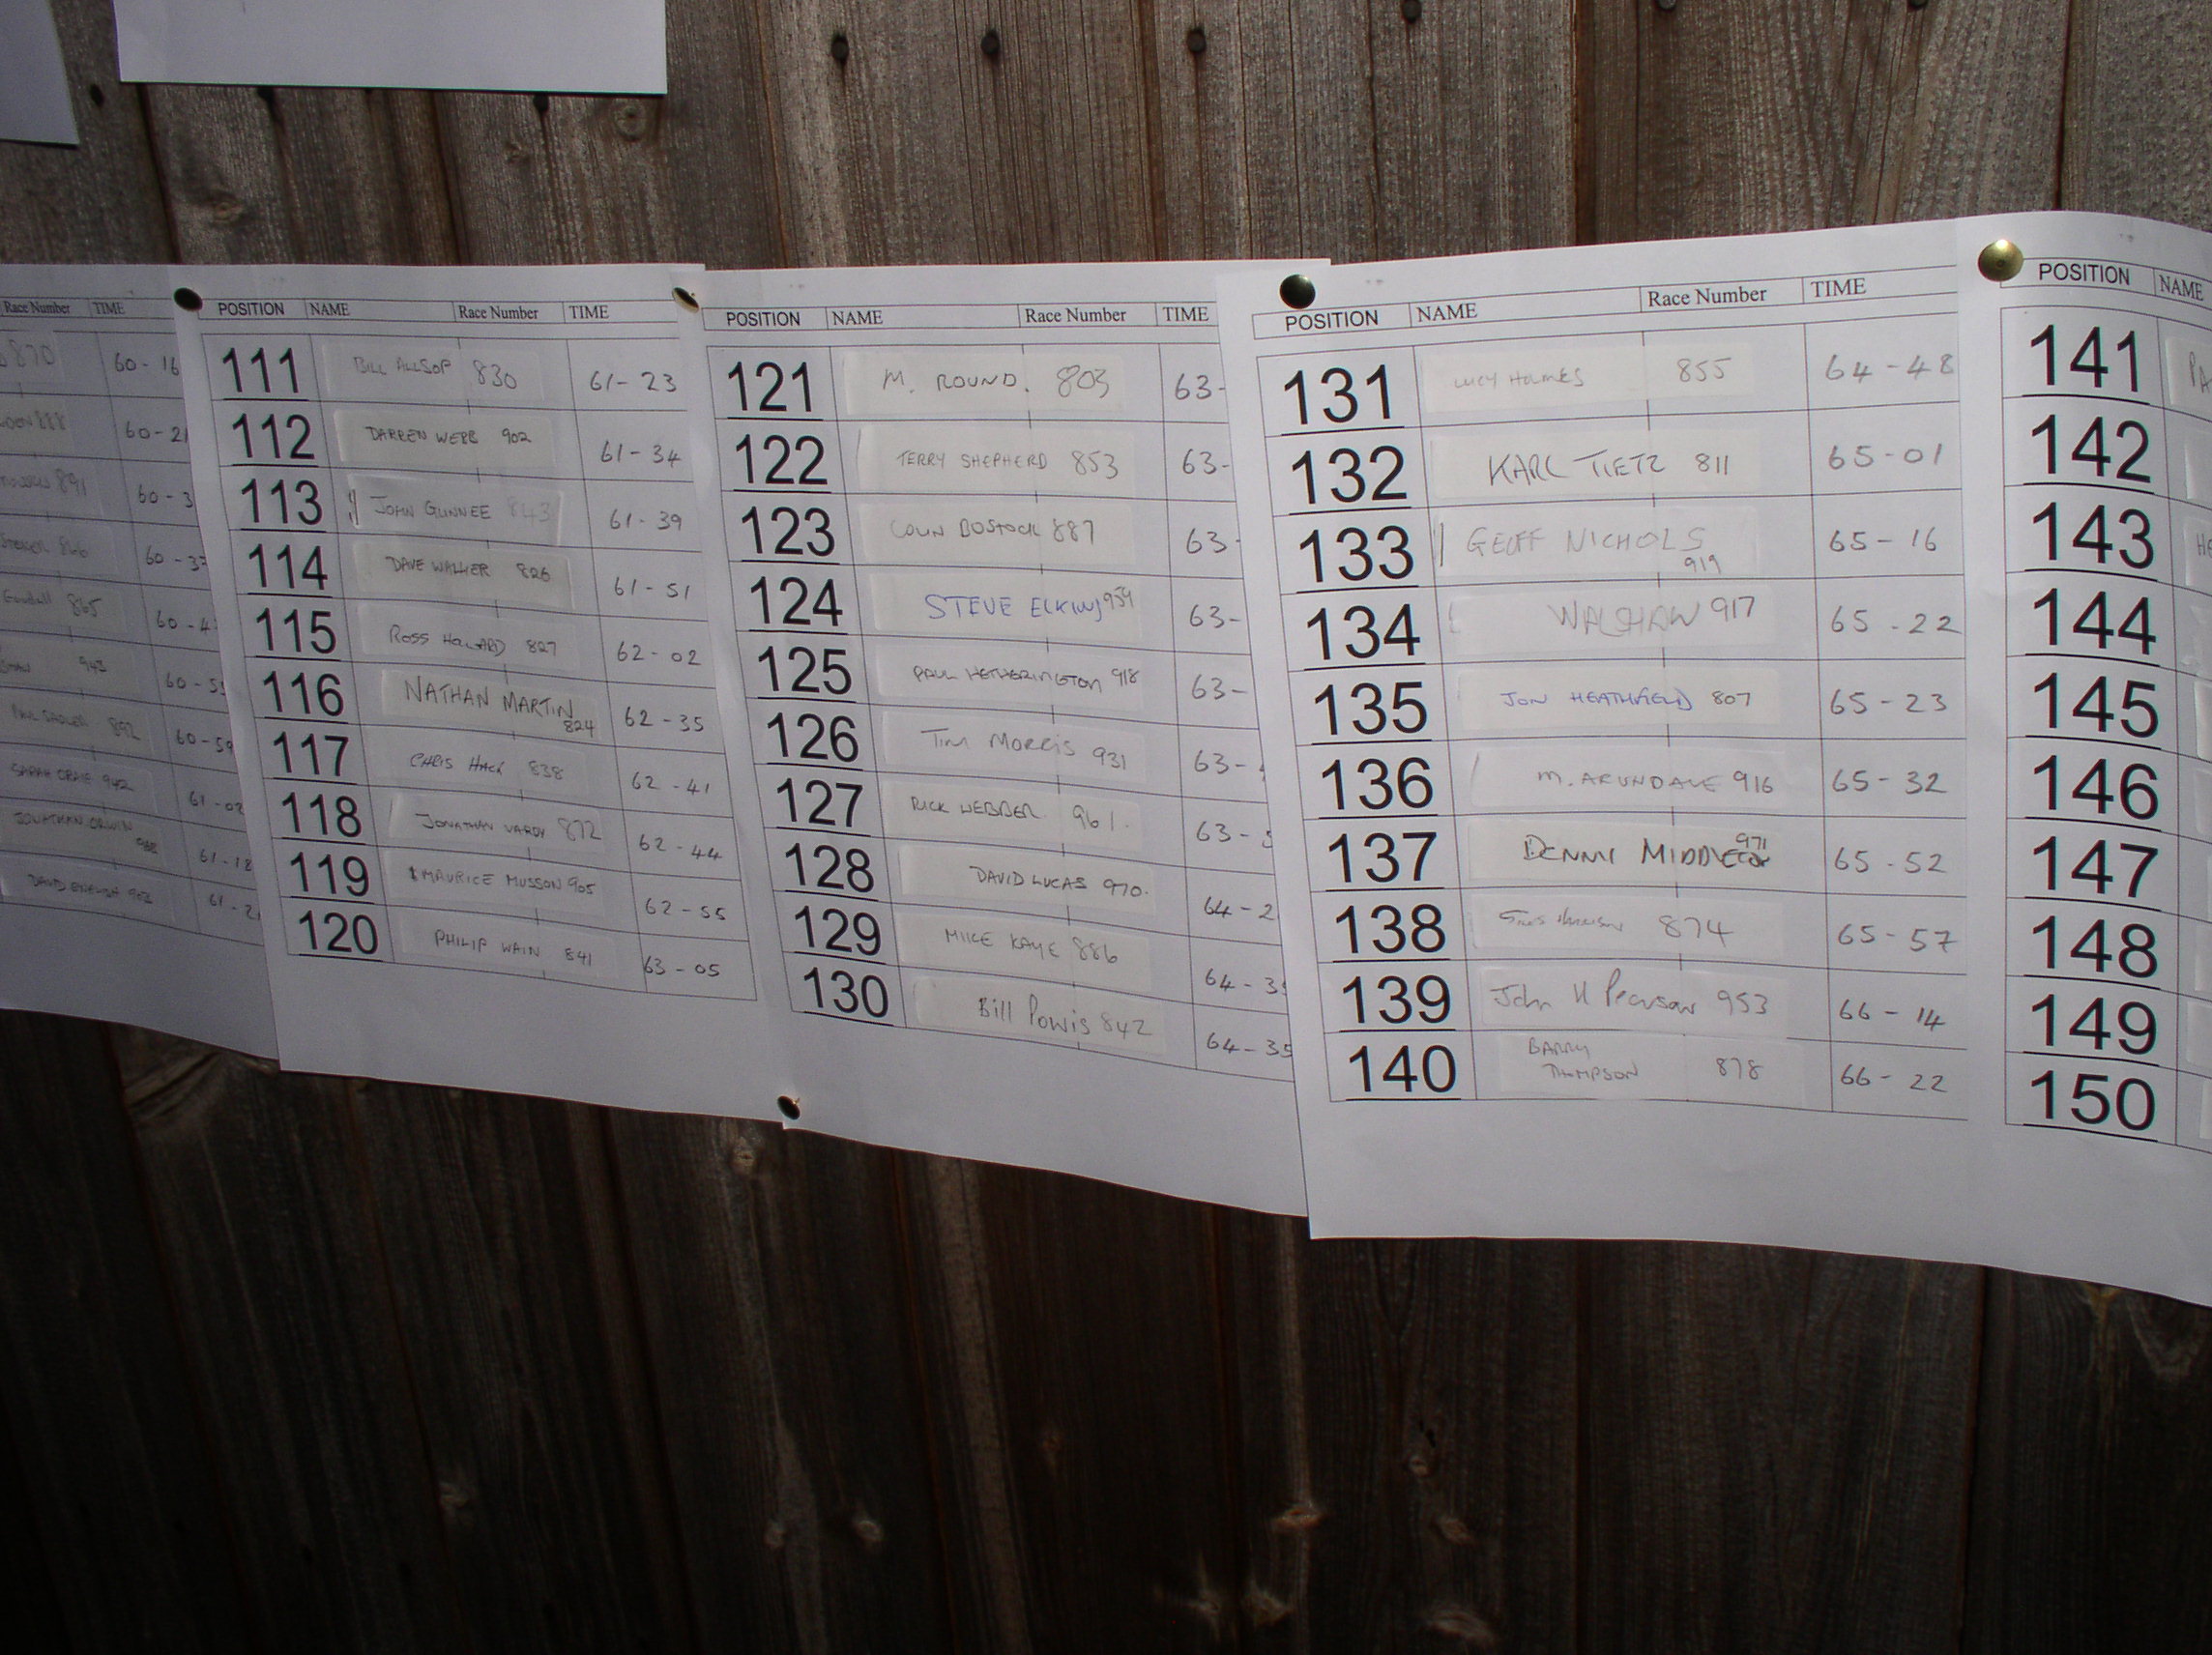 Race Number TIME
870 60-16
888 60-2
891 60-3
866 60-37
Goodall 865 60-4
943 60-5
892 60-59
SARAH CRAIG 942 61-02
JONATHAN ORWIN 61-18
DAVID ENGLISH 61-2
POSITION NAME Race Number TIME
111 BILL ALLSOP 830 61-23
112 DARREN WEBB 902 61-34
113 JOHN GUNNEE 843 61-39
114 DAVE WALKER 826 61-51
115 ROSS HOLLARD 827 62-02
116 NATHAN MARTIN 62-35
824
117 CHRIS HACK 838 62-41
118 JONATHAN VARDY 872 62-44
119 MAURICE MUSSON 905 62-55
120 PHILIP WAIN 841 63-05
POSITION NAME Race Number TIME
121 M. ROUND. 803 63-
122 TERRY SHEPHERD 853 63-
123 COLIN BOSTOCK 887 63-
124 STEVE ELKINS 939 63-
125 PAUL HETHERINGTON 918 63-
126 TIM MORRIS 931 63-
127 RICK WEBBER 961. 63-
128 DAVID LUCAS 970. 64-2
129 MIKE KAYE 886 64-3
130 Bill Powis 842 64-35
POSITION NAME Race Number TIME
131 LUCY HOLMES 855 64-48
132 KARL TIETZ 811 65-01
133 GEOFF NICHOLS 65-16
919
134 WALSHAW 917 65-22
135 JON HEATHFIELD 807 65-23
136 M. ARUNDALE 916 65-32
137 DENNY 971 65-52
138 874 65-57
139 John H Pearson 953 66-14
140 BARRY
THOMPSON 878 66-22
POSITION NAME
141
142
143
144
145
146
147
148
149
150